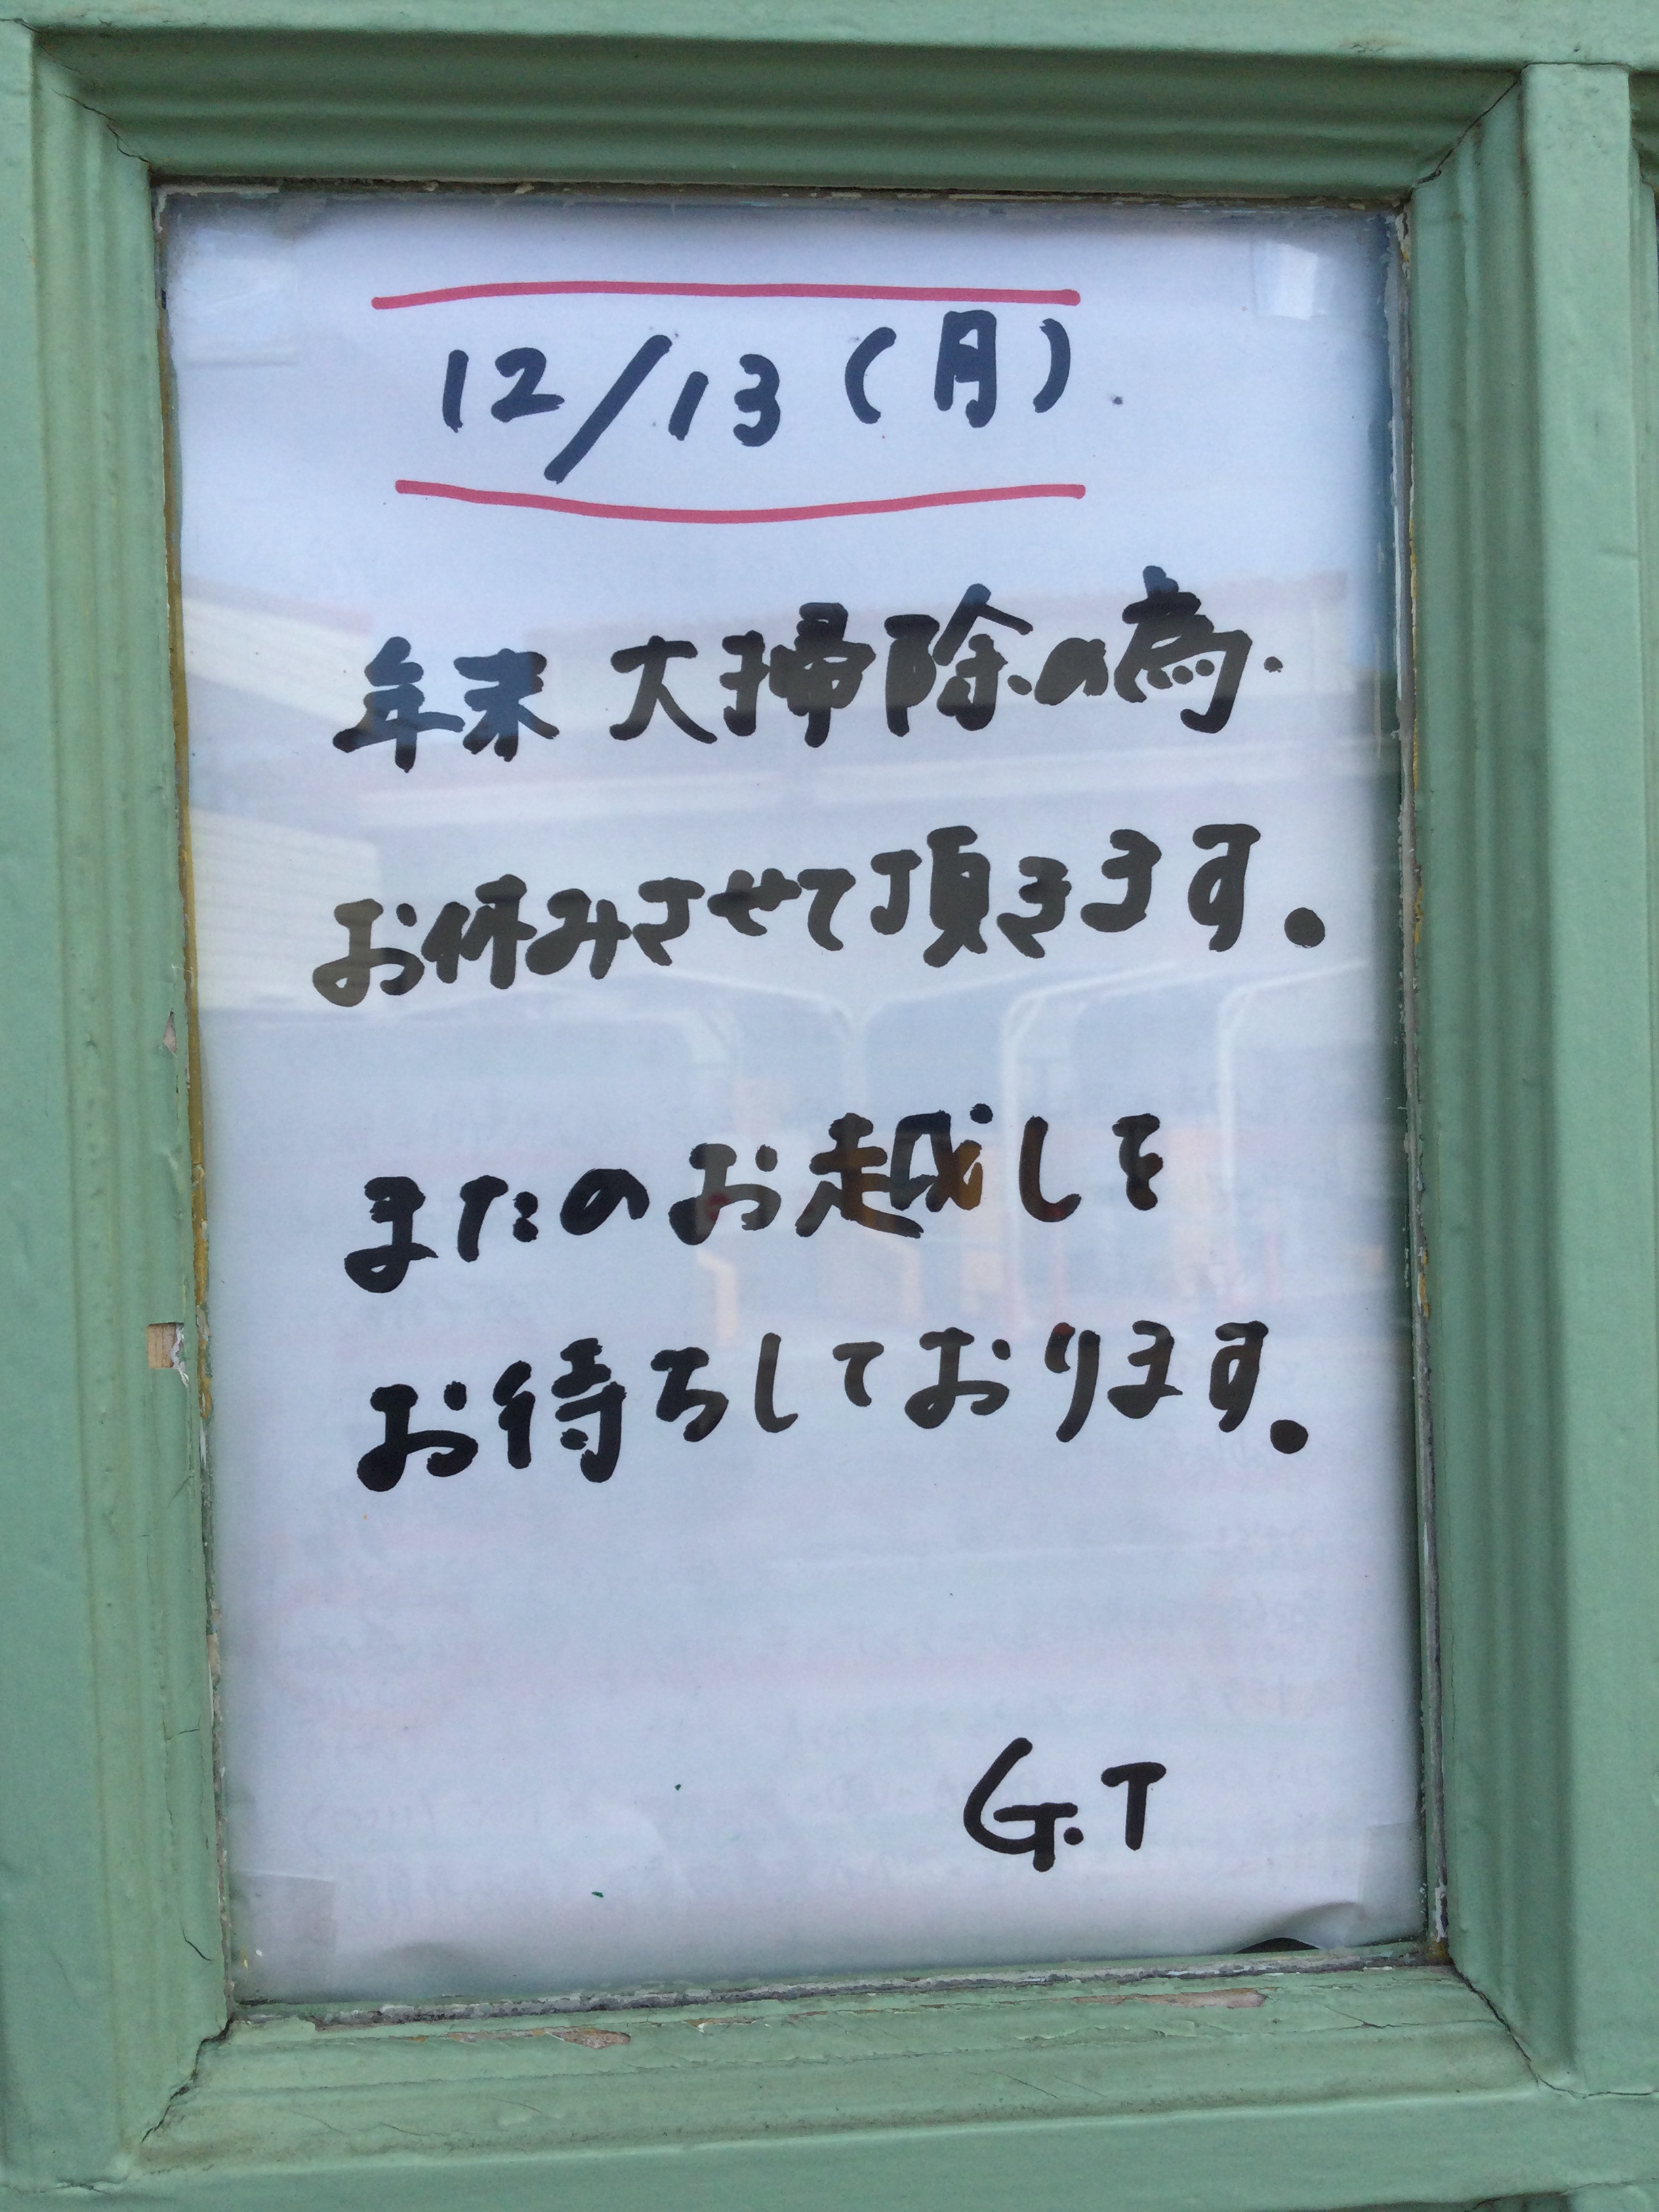 12/13(月)
年末 大掃除の為.
お休みさせて頂きます。
またのお越しを
お待ちしております。
G.T